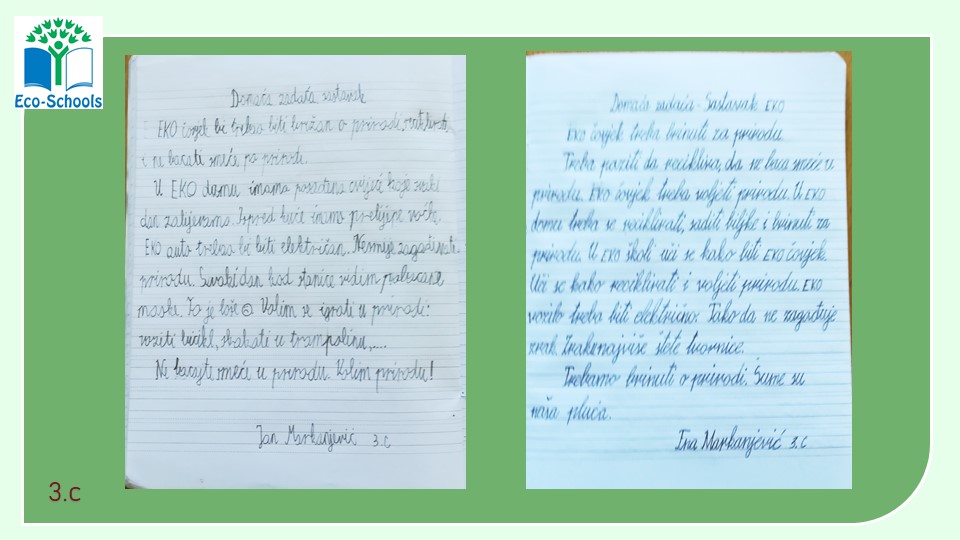 Eco-Schools
Domaća zadaća sastavak
EKO čovjek bi trebao biti brižan o prirodi, reciklirati
i ne bacati smeće po prirodi.
U EKO domu imamo posađeno cvijeće koje svaki
dan zalijevamo. Ispred kuće imamo prelijepe voćke.
EKO auto trebao bi biti električan. Nesmije zagađivati
prirodu. Svaki dan kod stanice vidim pobacane
maske. To je loše ☹ Volim se igrati u prirodi:
voziti bicikl, skakati u trampolinu,....
Ne bacajte smeće u prirodu. Volim prirodu!
Jan Markanjević 3.c
Domaća zadaća - Sastavak EKO
EKO čovjek treba brinuti za prirodu.
Treba paziti da reciklira, da ne baca smeće u
prirodu. EKO čovjek treba voljeti prirodu. U EKO
domu treba se reciklirati, saditi biljke i brinuti za
prirodu. U EKO školi uči se kako biti EKO čovjek.
Uči se kako reciklirati i voljeti prirodu. EKO
vozilo treba biti električno. Tako da ne zagađuje
zrak. Zraku najviše štete tvornice.
Trebamo brinuti o prirodi. Šume su
naša pluća.
Ena Markanjević 3.c
3.c